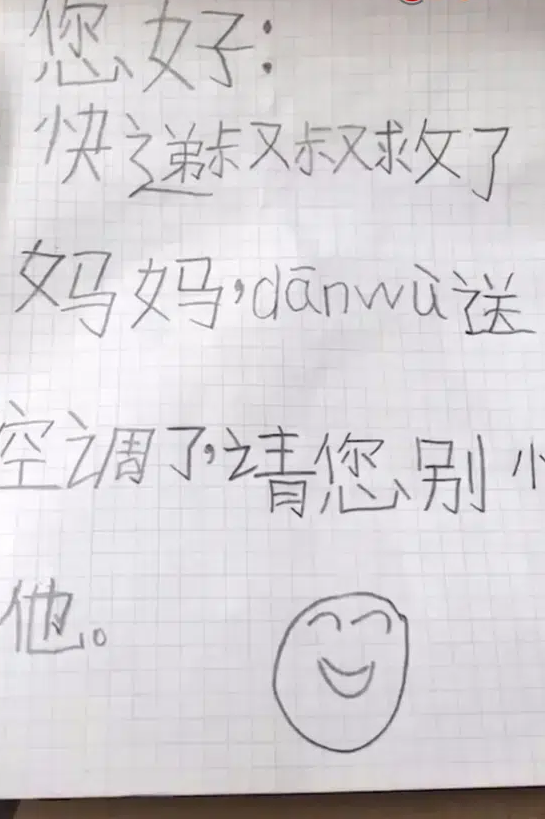 您好:
快递叔叔救了
妈妈,dānwù送
空调了,请您别
他。